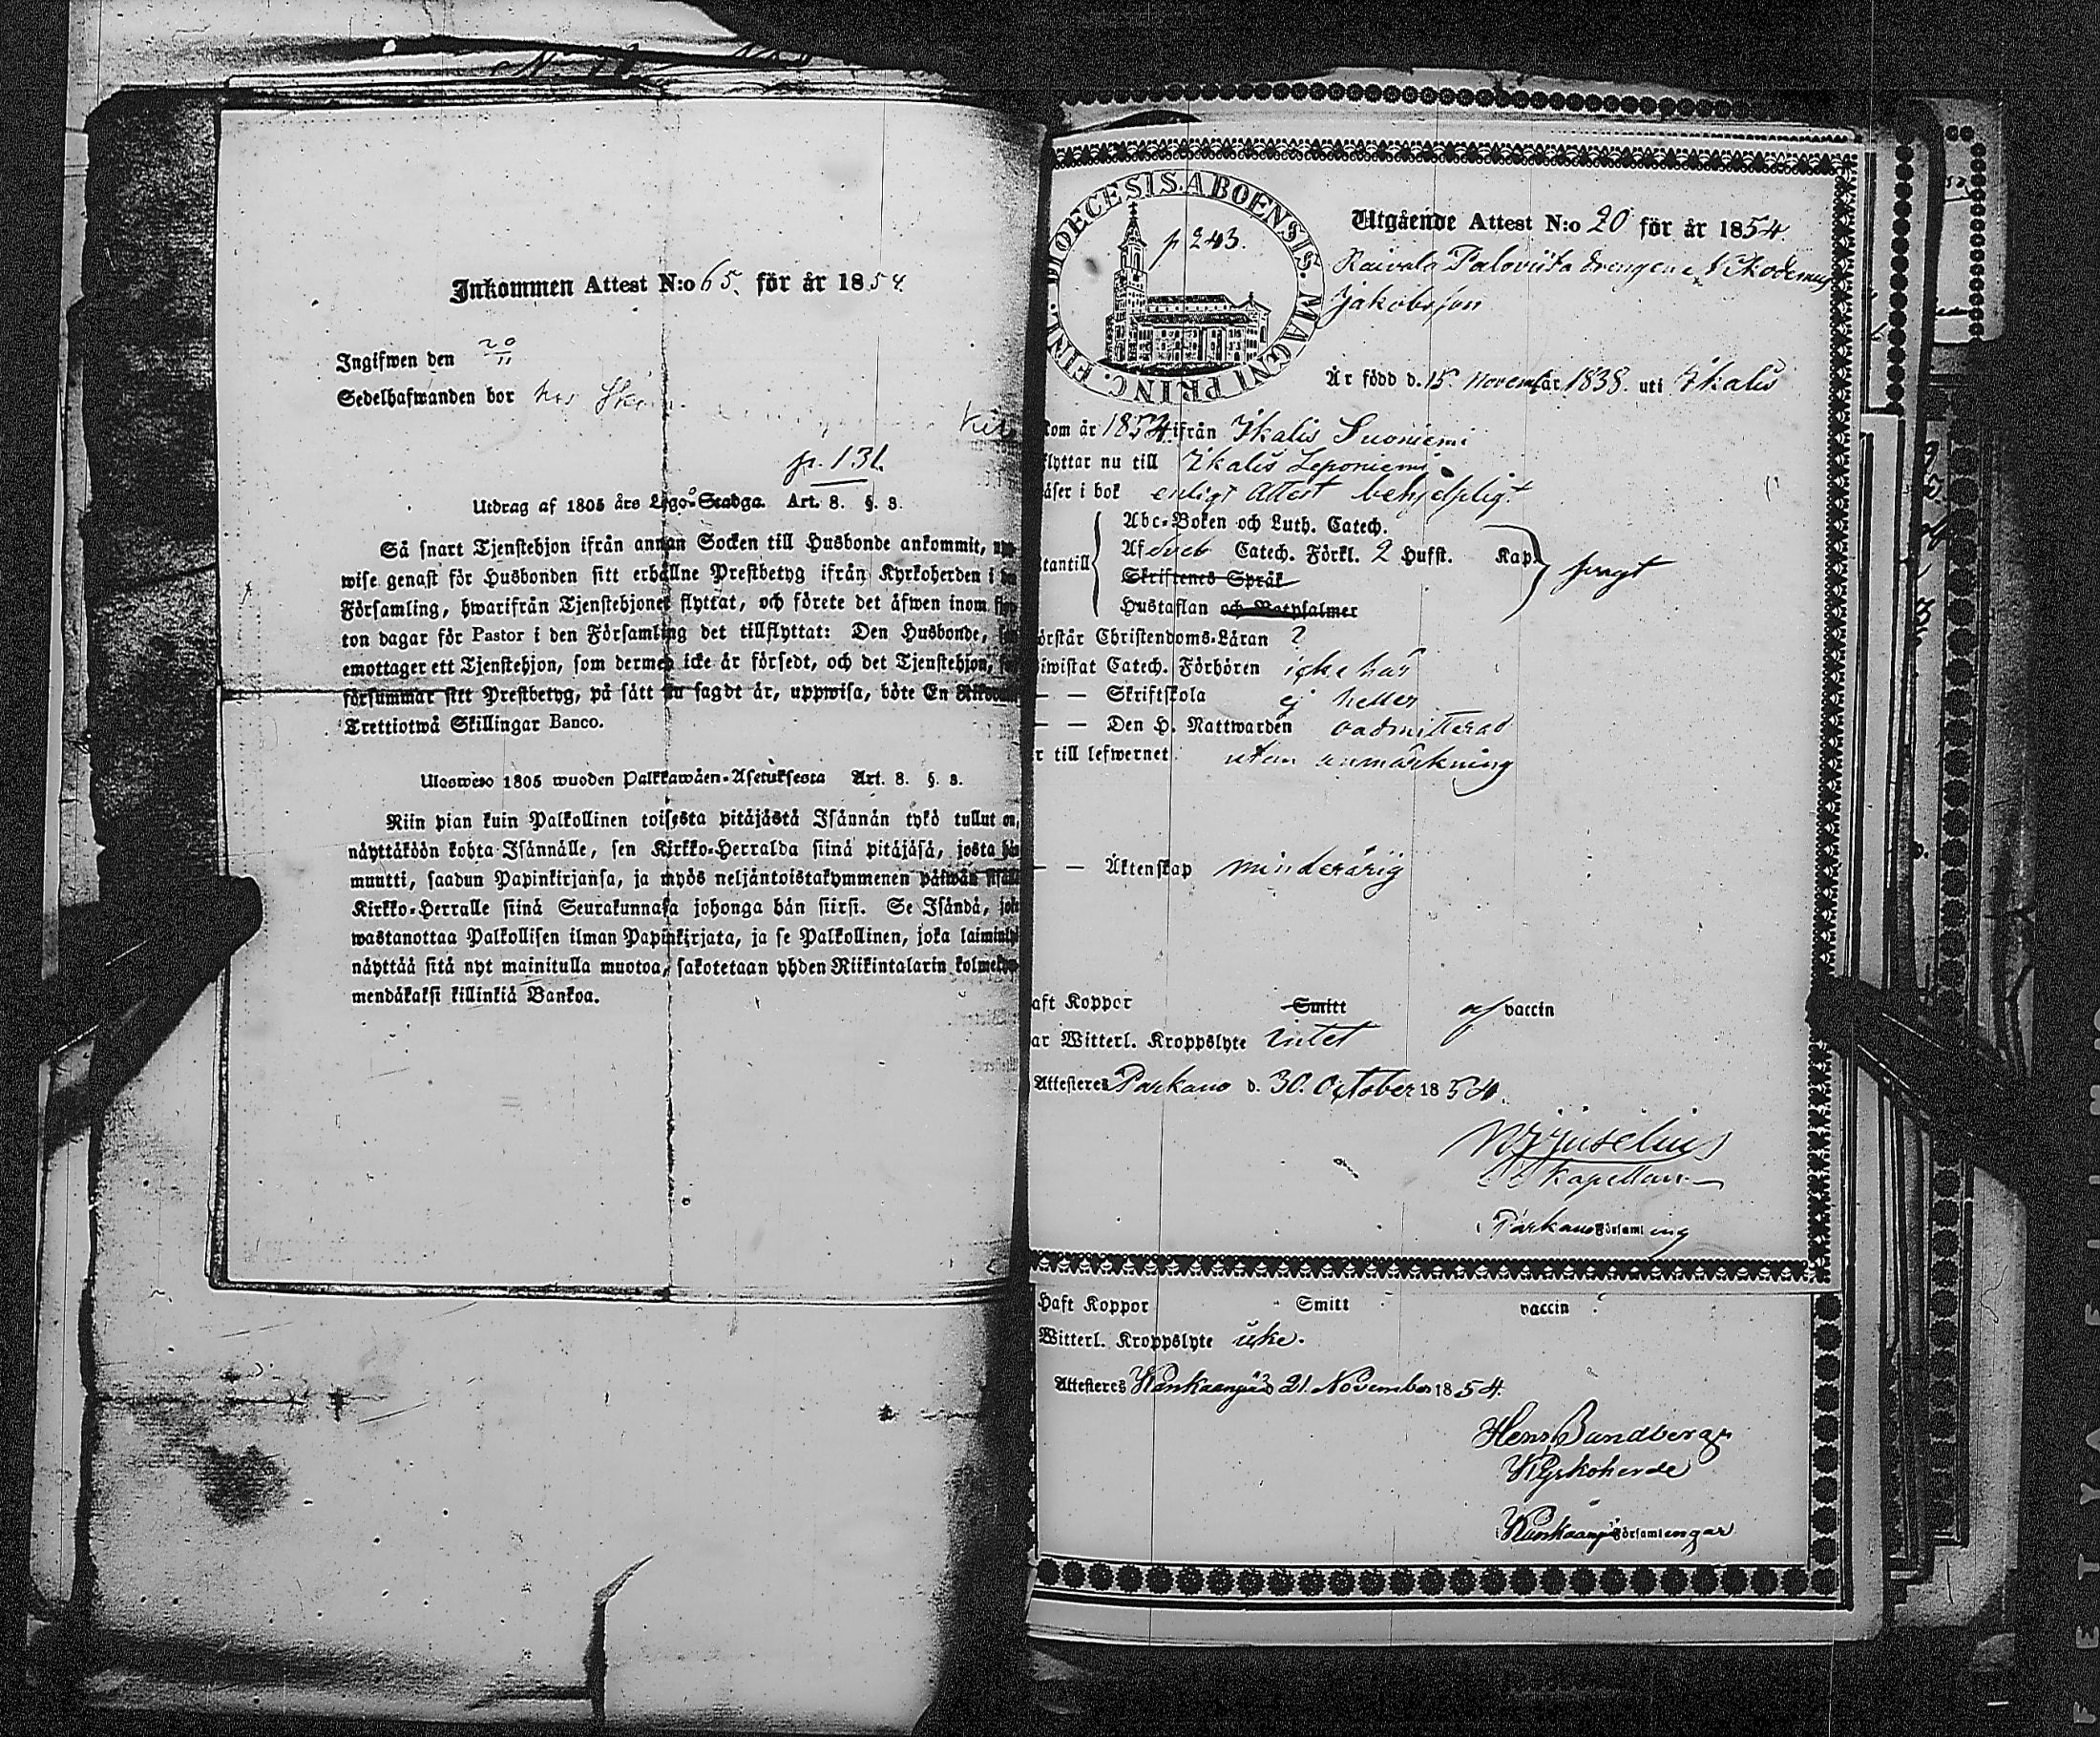 Inkommen Attest N:o 65. för år 1854.
Ingifwen den 20/11
Sedelhafwanden bor hos
p. 131.
Utdrag af 1805 års Lego-Stadga. Art. 8. §. 3.
Så snart Tjenstehjon ifrån annan Socken till Husbonde ankommit,
wise genast för Husbonden sitt erhållne Prestbetyg ifrån Kyrkoherden i
Församling, hwarifrån Tjenstehjonet flyttat, och förete det äfwen inom
ton dagar för Pastor i den Församling det tillflyttat: Den Husbonde,
emottager ett Tjenstehjon, som dermed icke är försedt, och det Tjenstehjon,
försummar sitt Prestbetyg, på sätt nu sagdt är, uppwisa, böte En
Trettiotwå Skillingar Banco.
Uloswéto 1805 wuoden Palkkawäen-Asetuksesta Art. 8. §. 3.
Niin pian kuin Palkollinen toisesta pitäjästä Isännän tykö tullut on,
näyttäköön kohta Isännälle, sen Kirkko-Herralda siinä pitäjäsä, josta hän
muutti, saadun Papinkirjansa, ja myös neljäntoistakymmenen päiwän
Kirkko-Herralle siinä Seurakunnasa johonga hän siirsi. Se Isändä,
wastanottaa Palkollisen ilman Papinkirjata, ja se Palkollinen, joka
näyttää sitä nyt mainitulla muotoa, sakotetaan yhden Riikintalarin
mendäkaksi killinkiä Bankoa.
DIOECESIS. ABOENSIS. MAGNI PRINC. FINL.
p 243.
Utgående Attest N:o 20 för år 1854.
Raivala Paloviita drengen Nikodemus
Jakobsson
Är född d. 15. November 1838. uti Ikalis
kom år 1854 ifrån Ikalis Suoniemi
flyttar nu till Ikalis Leponiemi
läser i bok enligt Attest behjelpligt
Abc-Boken och Luth. Catech.
Af Catech. Förkl. 2 Hufst. Kap.
utantill
Skriftenes Språk
Hustaflan och Botpsalmer
förstår Christendoms-Läran ?
biwistat Catech. Förhören icke här
— — Skriftskola ej heller
— — Den H. Nattwarden oadmitterad
r till lefwernet utan anmärkning
— — Äktenskap minderårig
aft Koppor Smitt af vaccin
ar Witterl. Kroppslyte intet
Attesteres Parkano d. 30. October 1854.
Juselius
Kapellan
i Parkano Församling
Haft Koppor Smitt vaccin ?
Witterl. Kroppslyte icke.
Attesteres Kankaanpää 21. November 1854.
Kyrkoherde
i Kankaanpä Församlingar